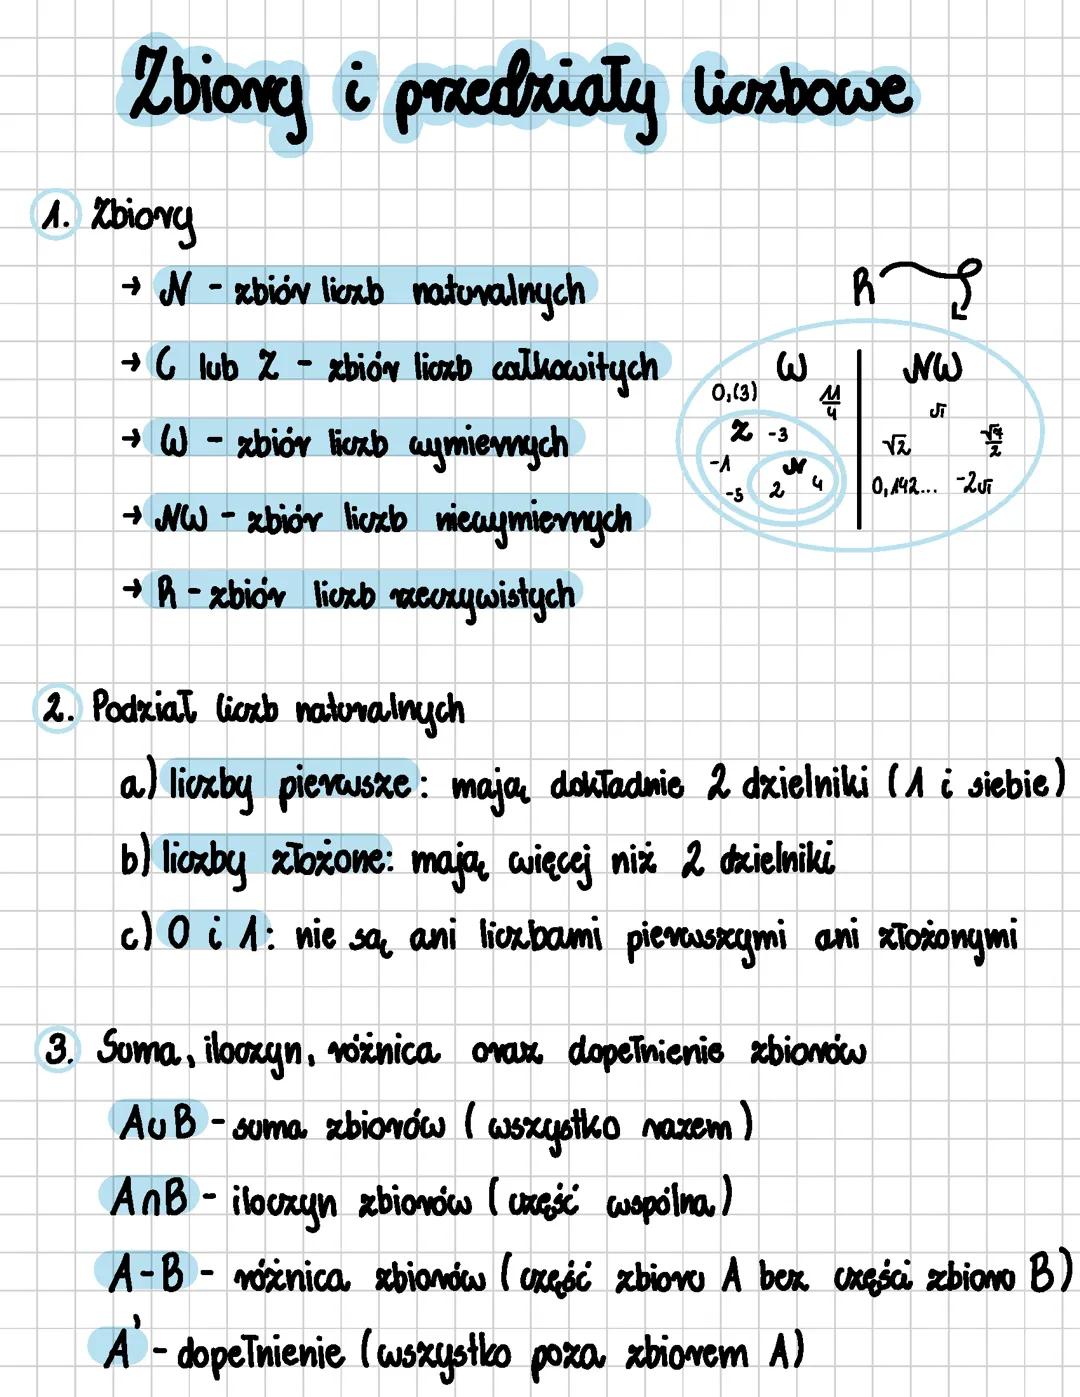 Zbiory i przedziały liczbowe
1. Zbiory
→ N - zbiór liczb naturalnych
→ C lub Z - zbiór liczb całkowitych
→ W - zbiór liczb wymiernych
→ NW - zbiór liczb niewymiernych
→ R - zbiór liczb rzeczywistych
R
W NW
0,(3) 11/4
Z -3
-1 N
-5 2 4
√2
0,142...
2. Podział liczb naturalnych
a) liczby pierwsze: mają dokładnie 2 dzielniki (1 i siebie)
b) liczby złożone: mają więcej niż 2 dzielniki
c) 0 i 1: nie są ani liczbami pierwszymi ani złożonymi
3. Suma, iloczyn, różnica oraz dopełnienie zbiorów
A∪B - suma zbiorów (wszystko razem)
A∩B - iloczyn zbiorów (część wspólna)
A-B - różnica zbiorów (część zbioru A bez części zbioru B)
A' - dopełnienie (wszystko poza zbiorem A)